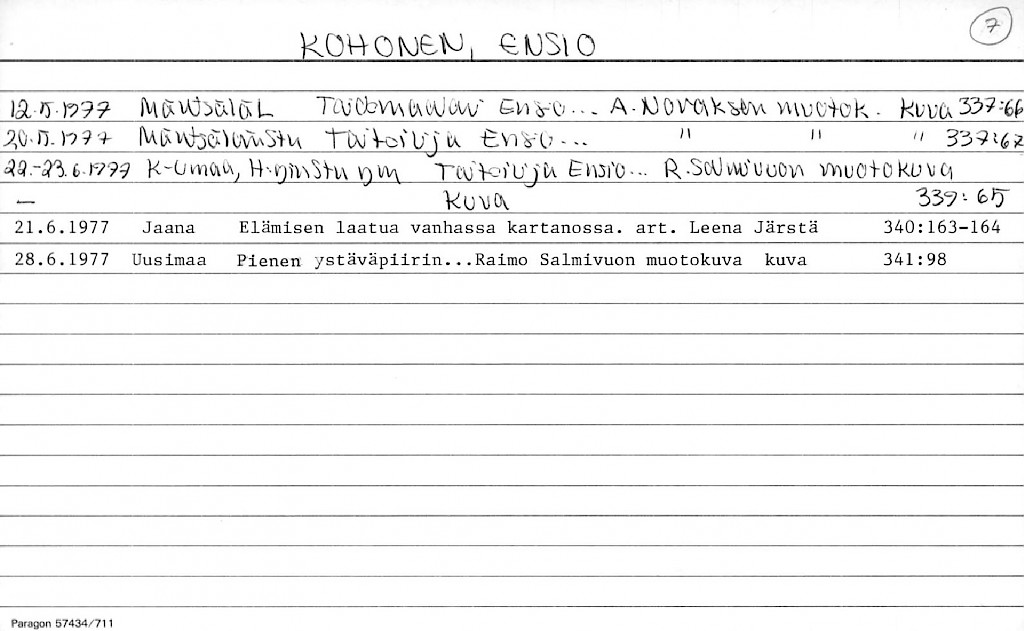 7
KOHONEN, ENSIO
12.5.1977 MäntsäläL Taidemaalari Ensio... A. Novaksen muotok. kuva 337:66
20.5.1977 MäntsälänStu Taiteilija Ensio... " " " 337:67
22.-23.6.1977 K-Umaa, H:ginStu ym Taiteilija Ensio... R. Salmivuon muotokuva
— kuva 339:65
21.6.1977 Jaana Elämisen laatua vanhassa kartanossa. art. Leena Järstä 340:163-164
28.6.1977 Uusimaa Pienen ystäväpiirin...Raimo Salmivuon muotokuva kuva 341:98
Paragon 57434/711